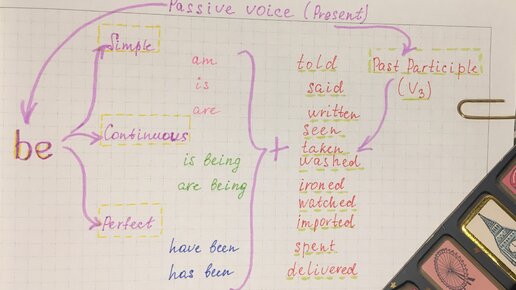 Passive voice (Present)
Simple
am
is
are
Continuous
is being
are being
Perfect
have been
has been
be
+
told
said
written
seen
taken
washed
ironed
watched
imported
spent
delivered
Past Participle
(V3)